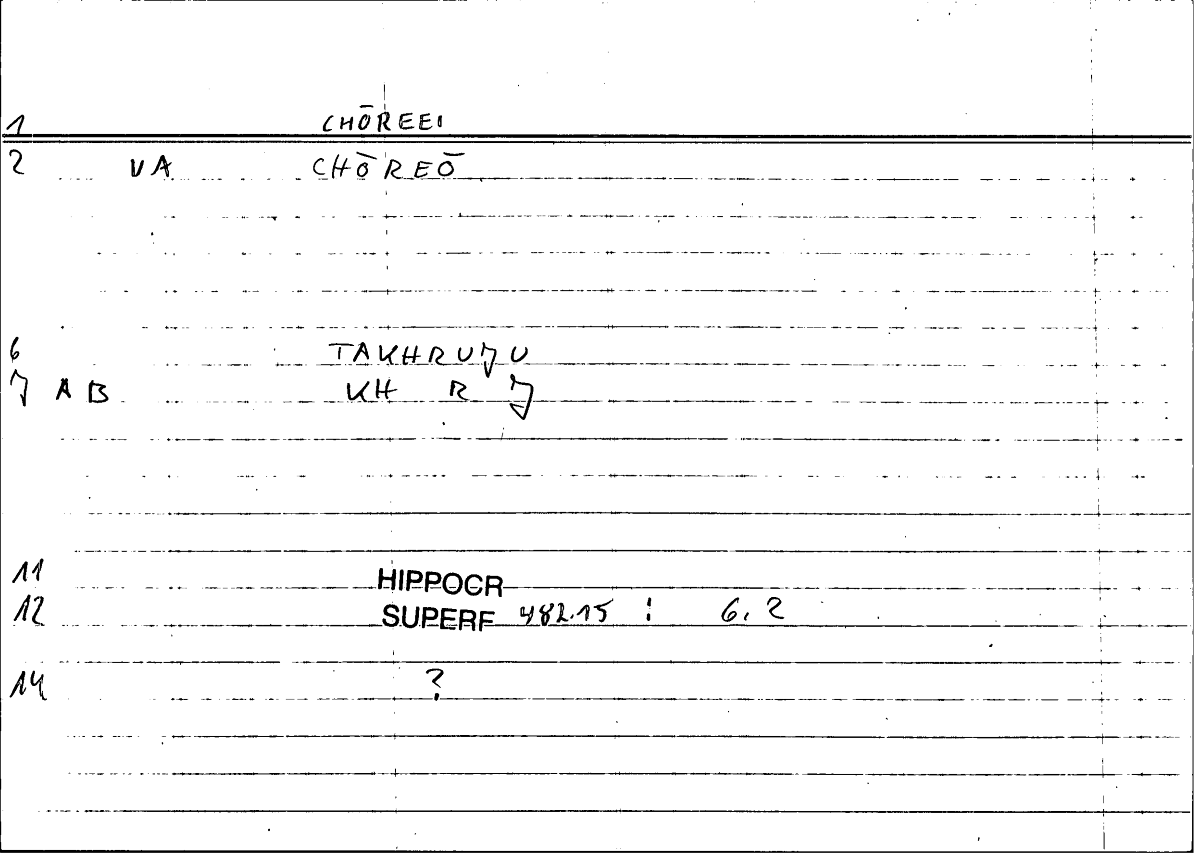 1 CHŌREEI
2 VA CHŌREŌ
6 TAKHRUJU
7 AB KH R J
11 HIPPOCR
12 SUPERF 482.15 : 6.2
14 ?